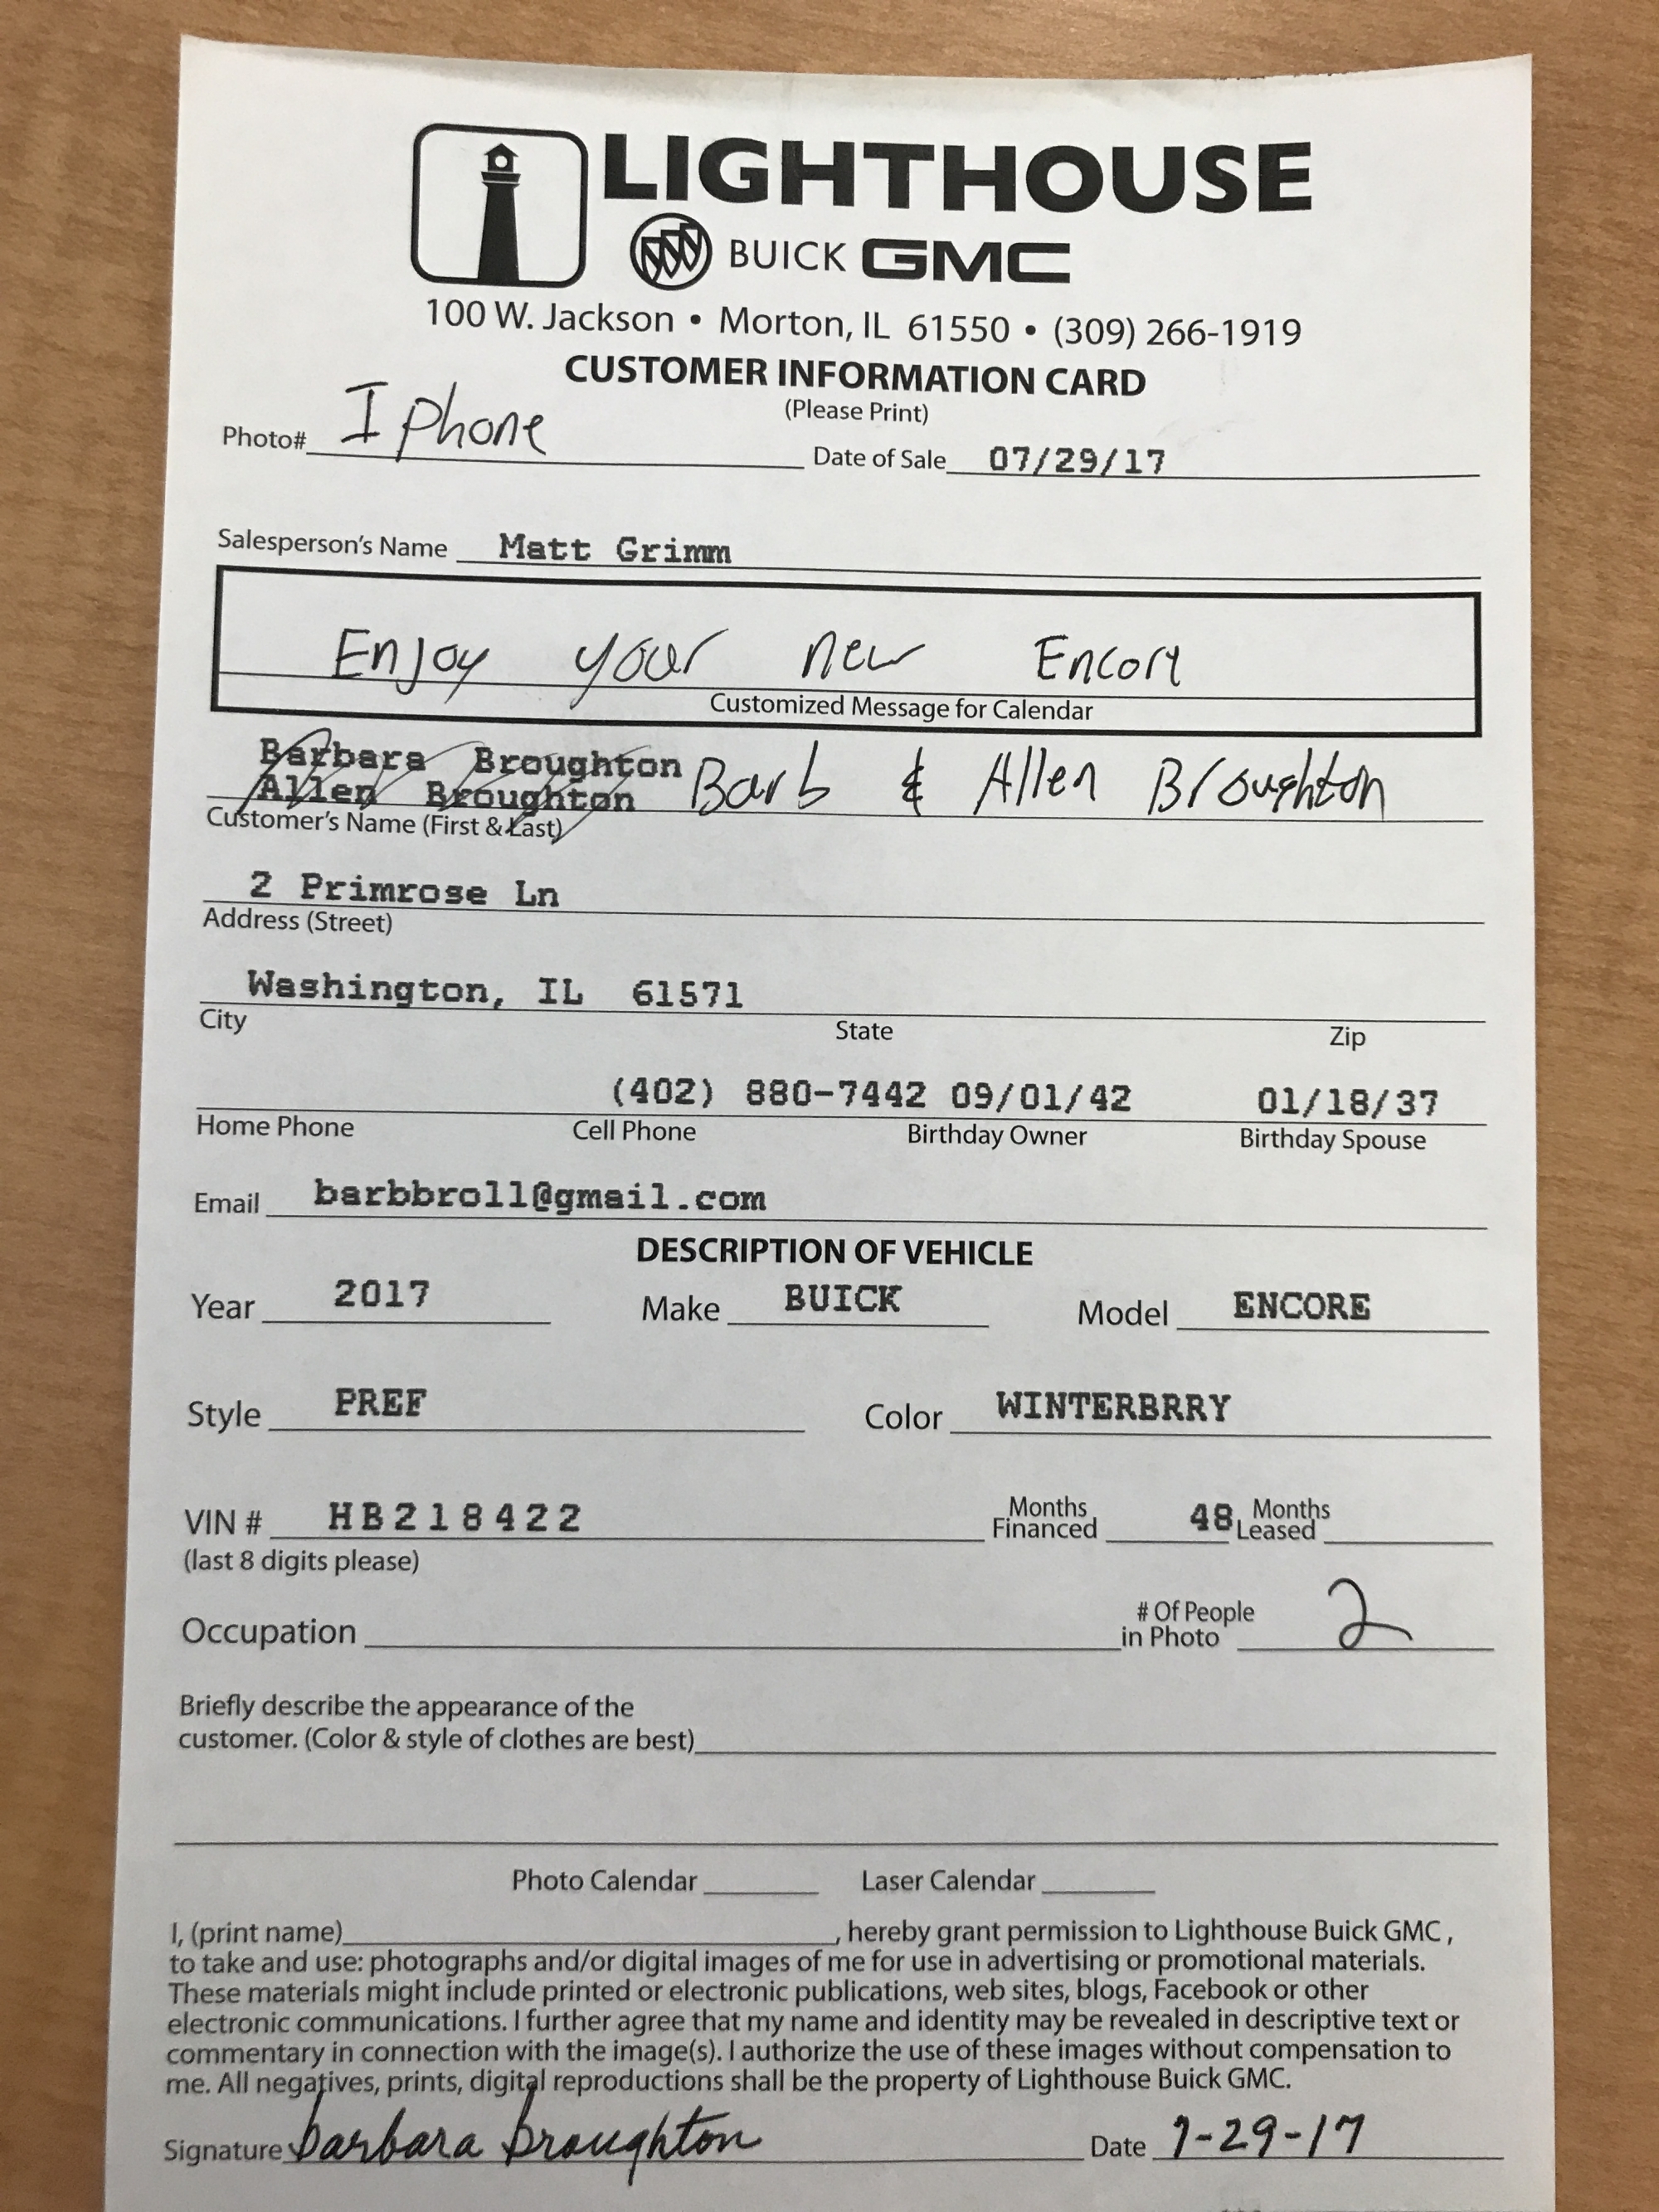 LIGHTHOUSE
BUICK GMC
100 W. Jackson • Morton, IL 61550 • (309) 266-1919
CUSTOMER INFORMATION CARD
(Please Print)
Photo# I phone Date of Sale 07/29/17
Salesperson's Name Matt Grimm
Enjoy your new Encore
Customized Message for Calendar
Barbara Broughton
Allen Broughton Barb & Allen Broughton
Customer's Name (First & Last)
2 Primrose Ln
Address (Street)
Washington, IL 61571
City State Zip
(402) 880-7442 09/01/42 01/18/37
Home Phone Cell Phone Birthday Owner Birthday Spouse
Email barbbroll@gmail.com
DESCRIPTION OF VEHICLE
Year 2017 Make BUICK Model ENCORE
Style PREF Color WINTERBRRY
VIN # HB218422 Months Financed 48 Months Leased
(last 8 digits please)
Occupation # Of People in Photo 2
Briefly describe the appearance of the
customer. (Color & style of clothes are best)
Photo Calendar Laser Calendar
I, (print name) , hereby grant permission to Lighthouse Buick GMC ,
to take and use: photographs and/or digital images of me for use in advertising or promotional materials.
These materials might include printed or electronic publications, web sites, blogs, Facebook or other
electronic communications. I further agree that my name and identity may be revealed in descriptive text or
commentary in connection with the image(s). I authorize the use of these images without compensation to
me. All negatives, prints, digital reproductions shall be the property of Lighthouse Buick GMC.
Signature barbara broughton Date 7-29-17